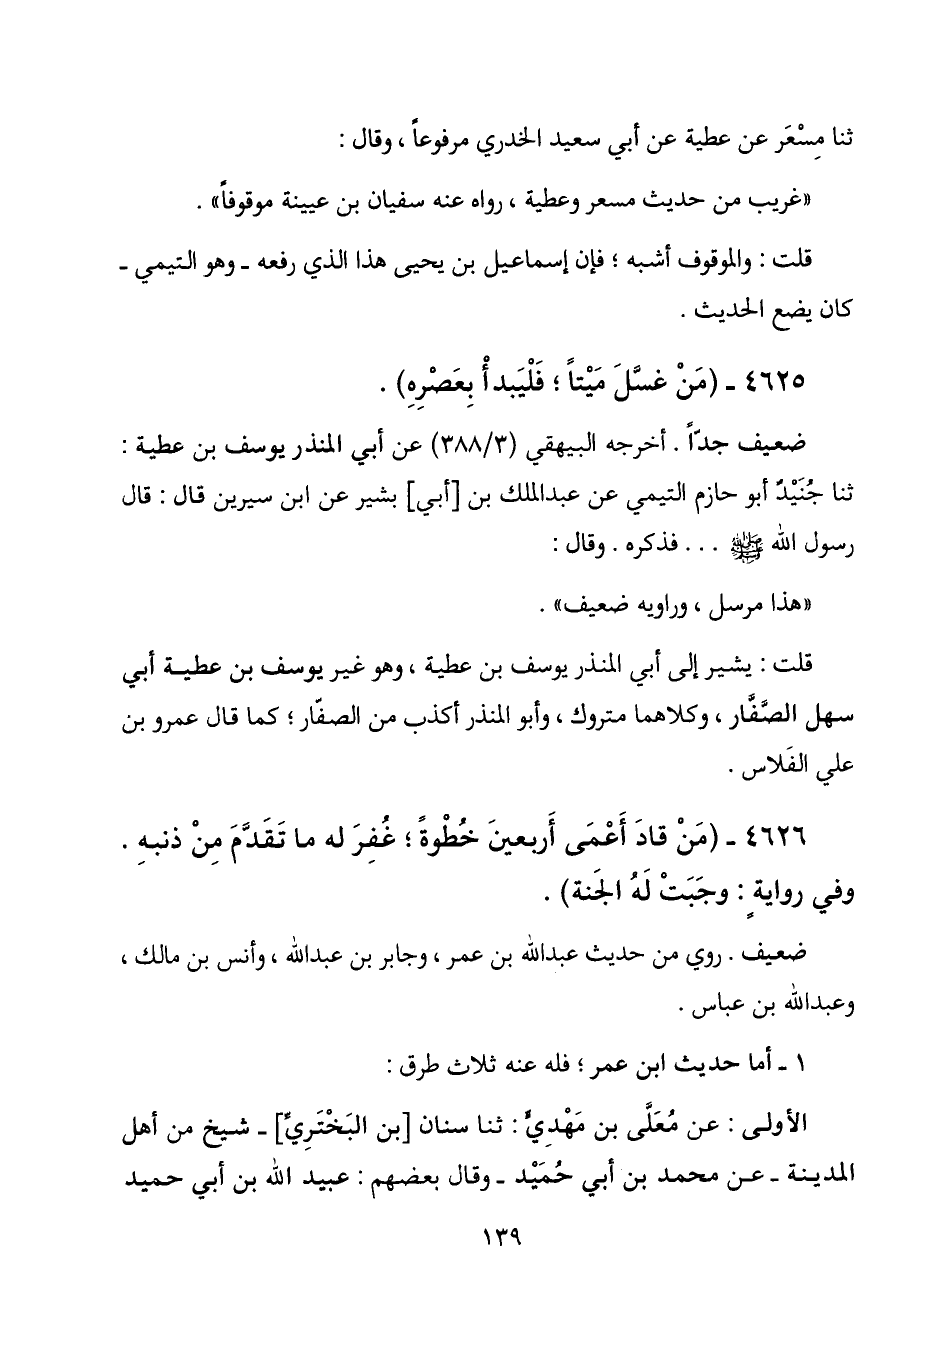 ثنا مِسْعَر عن عطية عن أبي سعيد الخدري مرفوعاً ، وقال :
«غريب من حديث مسعر وعطية ، رواه عنه سفيان بن عيينة موقوفاً» .
قلت : والموقوف أشبه ؛ فإن إسماعيل بن يحيى هذا الذي رفعه ـ وهو التيمي ـ
كان يضع الحديث .
٤٦٢٥ ـ (مَنْ غسَّلَ مَيْتاً ؛ فَلْيَبدأْ بِعَصْرِهِ) .
ضعيف جدّاً . أخرجه البيهقي (٣٨٨/٣) عن أبي المنذر يوسف بن عطية :
ثنا جُنَيْدٌ أبو حازم التيمي عن عبدالملك بن [أبي] بشير عن ابن سيرين قال : قال
رسول الله ﷺ . . . فذكره . وقال :
«هذا مرسل ، وراويه ضعيف» .
قلت : يشير إلى أبي المنذر يوسف بن عطية ، وهو غير يوسف بن عطيـة أبي
سهل الصَّفَّار ، وكلاهما متروك ، وأبو المنذر أكذب من الصفّار ؛ كما قال عمرو بن
علي الفَلاس .
٤٦٢٦ ـ (مَنْ قادَ أَعْمَى أَربعينَ خُطْوةً ؛ غُفِرَ له ما تَقَدَّمَ مِنْ ذنبهِ .
وفي روايةٍ : وجَبَتْ لَهُ الجَنة) .
ضعيف . روي من حديث عبدالله بن عمر ، وجابر بن عبدالله ، وأنس بن مالك ،
وعبدالله بن عباس .
١ ـ أما حديث ابن عمر ؛ فله عنه ثلاث طرق :
الأولى : عن مُعَلَّى بن مَهْدِيٍّ : ثنا سنان [بن البَخْتَرِيِّ] ـ شيخ من أهل
المدينة ـ عـن محمد بن أبي حُمَيْد ـ وقال بعضهم : عبيد الله بن أبي حميد
١٣٩